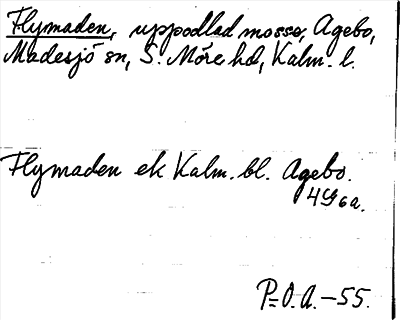 Flymaden, uppodlad mosse, Agebo,
Madesjö sn, S. Möre hd, Kalm. l.
Flymaden ek Kalm. bl. Agebo.
4G6a.
P=O.A.-55.